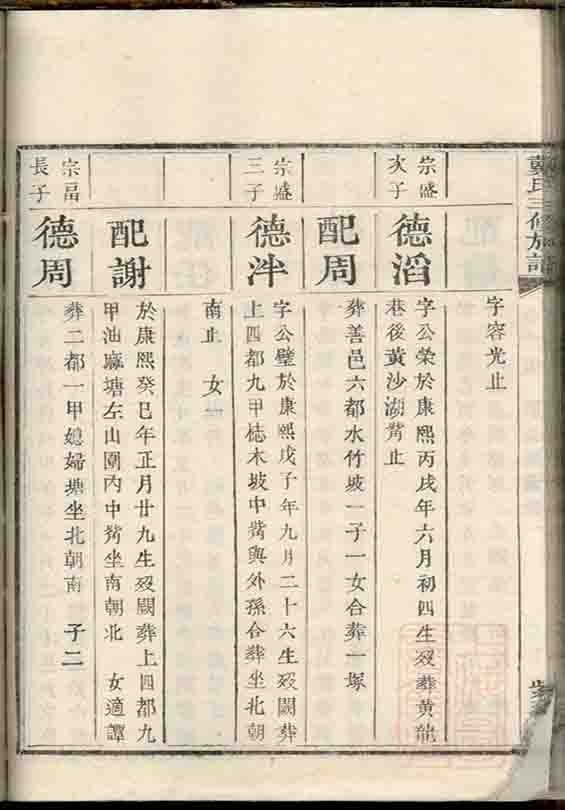 戴氏三修族譜
字容光止
宗盛次子
德滔
字公榮於康熙丙戌年六月初四生歿葬黃龍
巷後黃沙湖觜止
配周
葬善邑六都水竹坡一子一女合葬一塚
宗盛三子
德泮
字公璧於康熙戊子年九月二十六生歿闕葬
上四都九甲梽木坡中觜與外孫合葬坐北朝
南止 女一
配謝
於康熙癸巳年正月廿九生歿闕葬上四都九
甲油麻塘左山圍內中觜坐南朝北 女適譚
宗昌長子
德周
葬二都一甲媳婦塘坐北朝南 子二